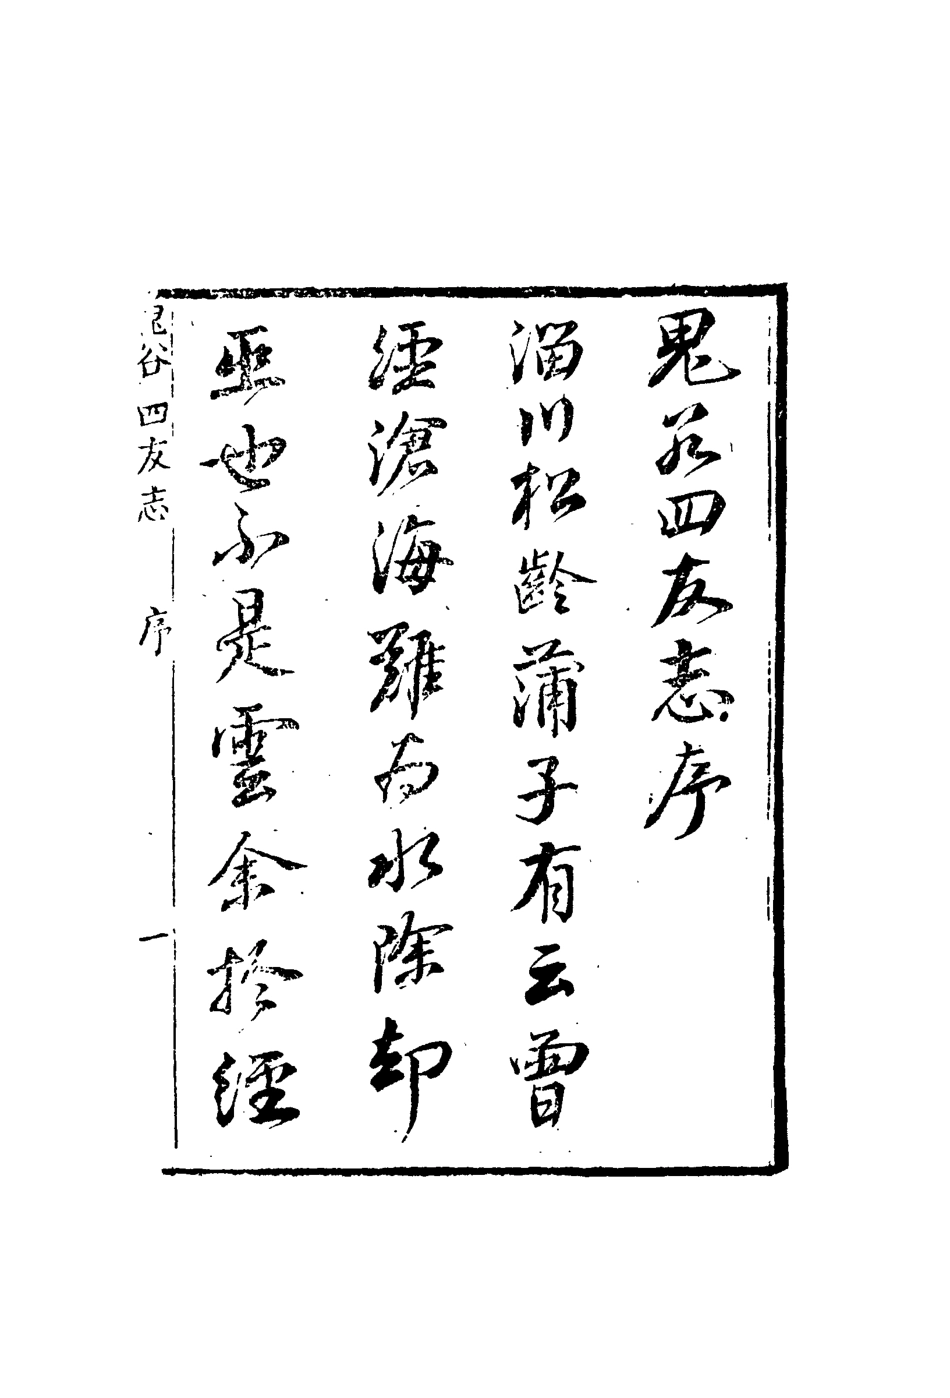 鬼谷四友志序
淄川松齡蒲子有云曾
經滄海難為水除却
巫也不是雲余於經
鬼谷四友志 序 一